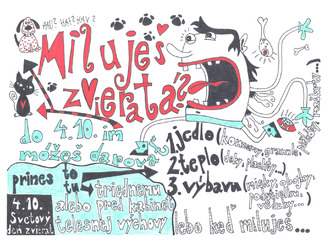 HAU? HAF? HAV?
Miluješ
zvieratá?
do 4.10. im
môžeš darovať
1. jedlo (konzervy, granule,
2. teplo (deky, paplóny...)
3. výbavu (misky, obojky,
prines
to
tu → triednemu
alebo pred kabinet
telesnej výchovy
4.10.
Svetový
deň zvierat
lebo keď miluješ...